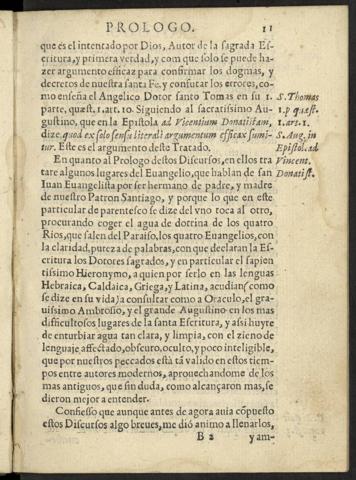 PROLOGO. 11
que es el intentado por Dios, Autor de la sagrada Es-
critura, y primera verdad, y com que solo se puede ha-
zer argumento eficaz para confirmar los dogmas, y
decretos de nuestra santa Fe, y confutar los errores, co-
mo enseña el Angelico Dotor santo Tomas en su 1.
parte, quæst. 1. art. 10. Siguiendo al sacratissimo Au-
gustino, que en la Epistola, ad Vicentium Donatistam,
dize, quod ex solo sensu literali argumentum efficax sumi-
tur. Este es el argumento deste Tratado.
S. Thomas
1. p quæst.
1. art. 1.
S. Aug. in
Epistol. ad
Vincent.
Donatist.
En quanto al Prologo destos Discursos, en ellos tra
tare algunos lugares del Euangelio, que hablan de san
Iuan Euangelista por ser hermano de padre, y madre
de nuestro Patron Santiago, y porque lo que en este
particular de parentesco se dize del vno toca al otro,
procurando coger el agua de dotrina de los quatro
Rios, que salen del Paraiso, los quatro Euangelios, con
la claridad, pureza de palabras, con que declaran la Es-
critura los Dotores sagrados, y en particular el sapien
tissimo Hieronymo, a quien por serlo en las lenguas
Hebraica, Caldaica, Griega, y Latina, acudian (como
se dize en su vida) a consultar como a Oraculo, el gra-
uissimo Ambrosio, y el grande Augustino en los mas
dificultosos lugares de la santa Escritura, y assi huyre
de enturbiar agua tan clara, y limpia, con el zieno de
lenguaje affectado, obscuro, oculto, y poco inteligible,
que por nuestros peccados està tã valido en estos tiem-
pos entre autores modernos, aprouechandome de los
mas antiguos, que sin duda, como alcançaron mas, se
dieron mejor a entender.
Confiesso que aunque antes de agora auia cõpuesto
estos Discursos algo breues, me dió animo a llenarlos,
B 2 y am-